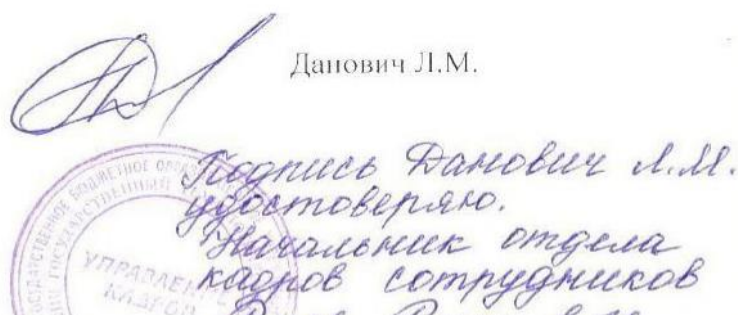 Данович Л.М.
Подпись Данович Л.М.
удостоверяю.
Начальник отдела
кадров сотрудников
УПРАВЛЕНИЕ
КАДРОВ